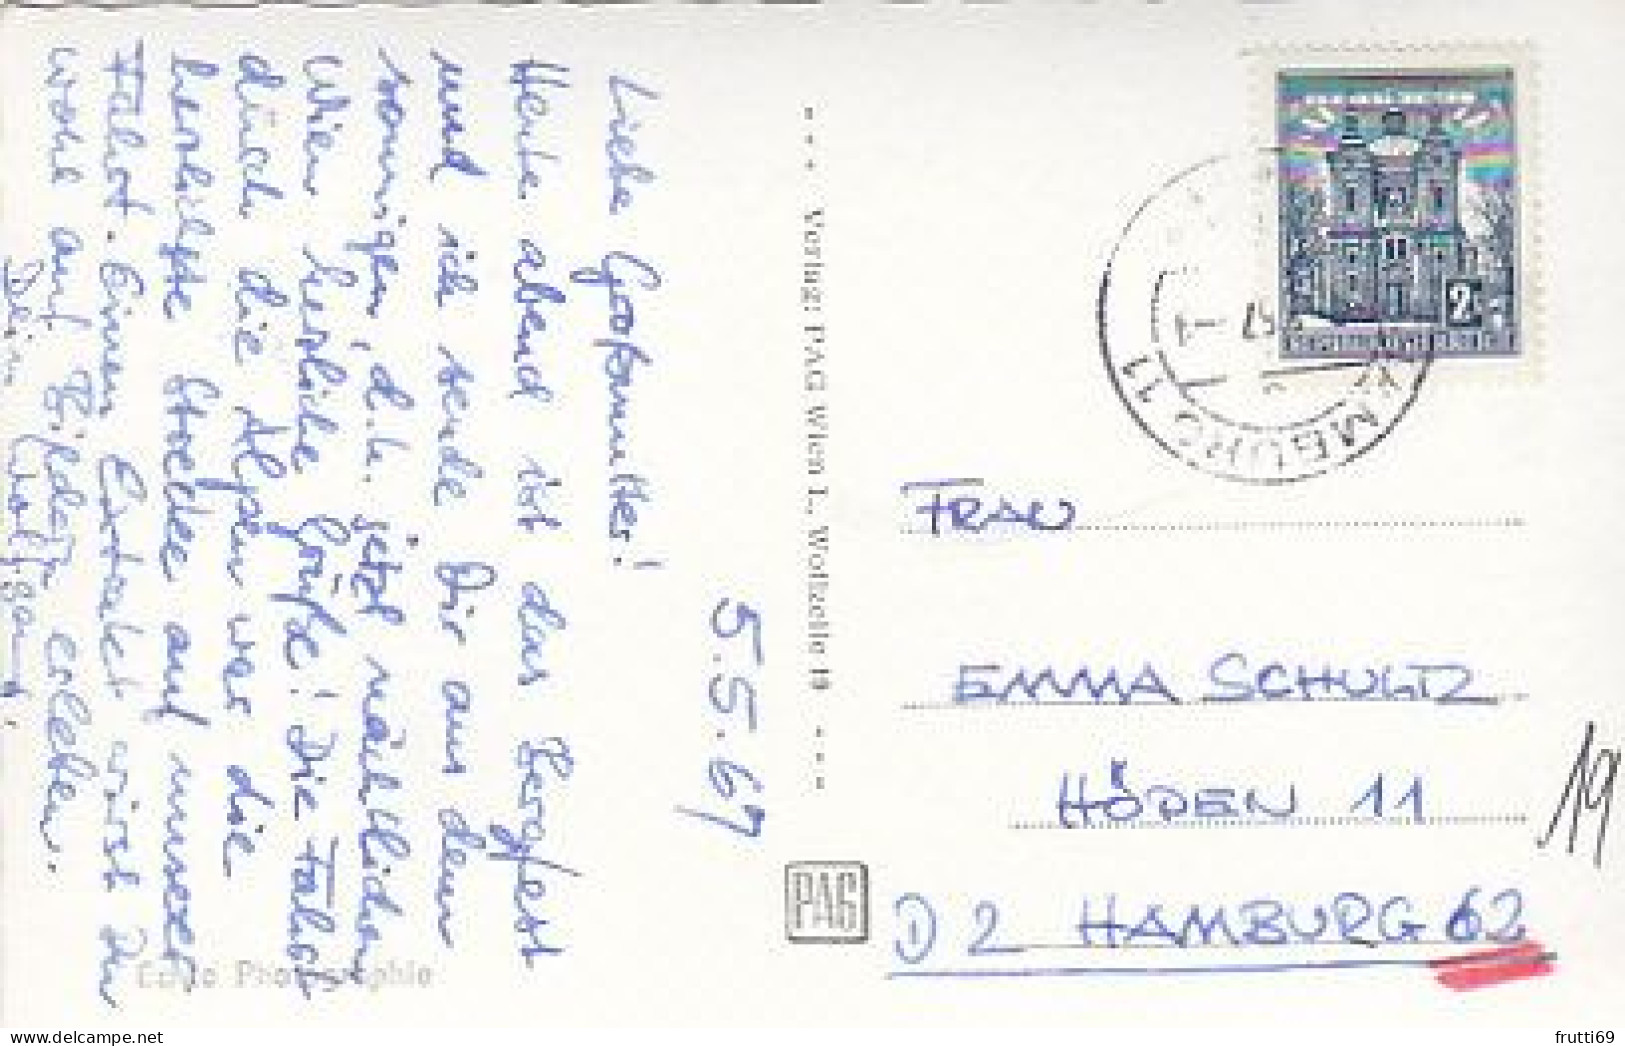 5.5.67
Liebe Großmutter!
Heute abend ist das Bergfest
und ich sende Dir aus dem
sonnigen, d.h. jetzt nächtlichen
Wien herzliche Grüße! Die Fahrt
durch die Alpen war die
herrlichste Strecke auf unserer
Fahrt. Einen Eintakt wirst Du
wohl auf Bildern erleben.
Dein Wolfgang.
Echte Photographie
Verlag: PAG Wien I., Wollzeile 19
PAG
2
HAMBURG 11
FRAU
EMMA SCHULTZ
HÖDEN 11
D 2 HAMBURG 62
19
frutti69
delcampe.net